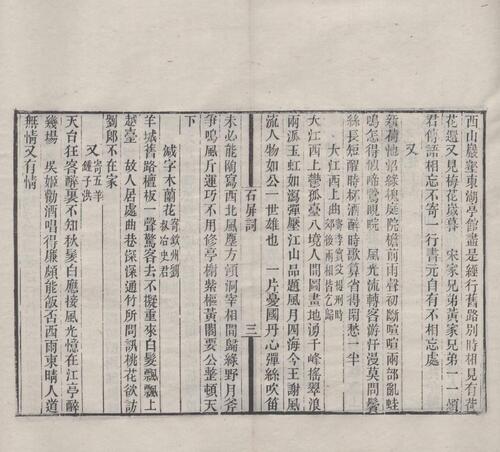 西山巖壑東湖亭館盡是經行舊路別時相見有荷
花還又見梅花歲暮　宋家兄弟黃家兄弟一一煩
君傳語相忘不寄一行書元自有不相忘處
又
新荷池沼綠槐庭院檐前雨聲初斷喧喧兩部亂蛙
鳴怎得似啼鶯睍睆　風光流轉客遊汗漫莫問鬢
絲長短醒時杯酒醉時歌算省得閑愁一半
大江西上曲 寄李實父提刑時郊後兩相皆歸
大江西上鬱孤臺八境人間圖畫地湧千峰搖翠浪
兩派玉虹如瀉彈壓江山品題風月四海今王謝風
流人物如公一世雄也　一片憂國丹心彈絲吹笛
石屏詞 三
未必能陶寫西北風塵方澒洞宰相閒歸綠野月斧
爭鳴風斤運巧不用修亭榭紫樞黃閣要公整頓天
下
減字木蘭花 寄欽州劉叔冶史君
羊城舊路檀板一聲驚客去不擬重來白髮飄飄上
越臺　故人居處曲巷深深通竹所問訊桃花欲訪
劉郎不在家
又 寄五羊鍾子洪
天台狂客醉裏不知秋鬢白應接風光憶在江亭醉
幾場　吳姬勸酒唱得廉頗能飯否西雨東晴人道
無情又有情